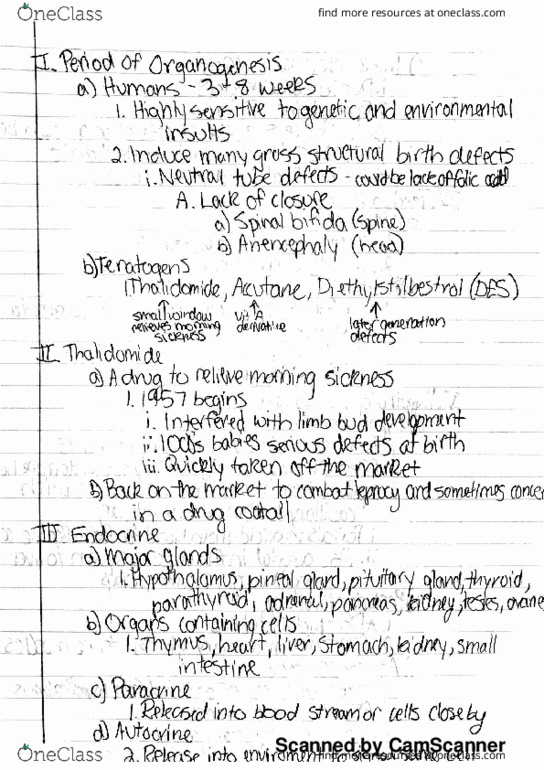 OneClass
find more resources at oneclass.com
I. Period of Organogenesis
a) Humans - 3-8 weeks
1. Highly sensitive to genetic and environmental
insults
2. Induce many gross structural birth defects
i. Neutral tube defects - could be lack of folic acid
A. Lack of closure
a) Spinal bifida (spine)
b) Anencephaly (head)
b) Teratogens
1. Thalidomide, Accutane, Diethylstilbestral (DES)
small window
relieves morning
sickness
vit A
derivative
later generation
defects
II Thalidomide
a) A drug to relieve morning sickness
1. 1957 begins
i. Interfered with limb bud development
ii. 100ds babies serious defects at birth
iii. Quickly taken off the market
b) Back on the market to combat leprocy and sometimes cancer
in a drug coctail
III Endocrine
a) Major glands
1. Hypothalamus, pineal gland, pituitary gland, thyroid,
parathyroid, adrenal, pancreas, kidney, testes, ovaries
b) Organs containing cells
1. Thymus, heart, liver, stomach, kidney, small
intestine
c) Paracrine
1. Released into blood stream or cells close by
d) Autocrine
2. Release into enviroment
Scanned by CamScanner
OneClass
find more resources at oneclass.com